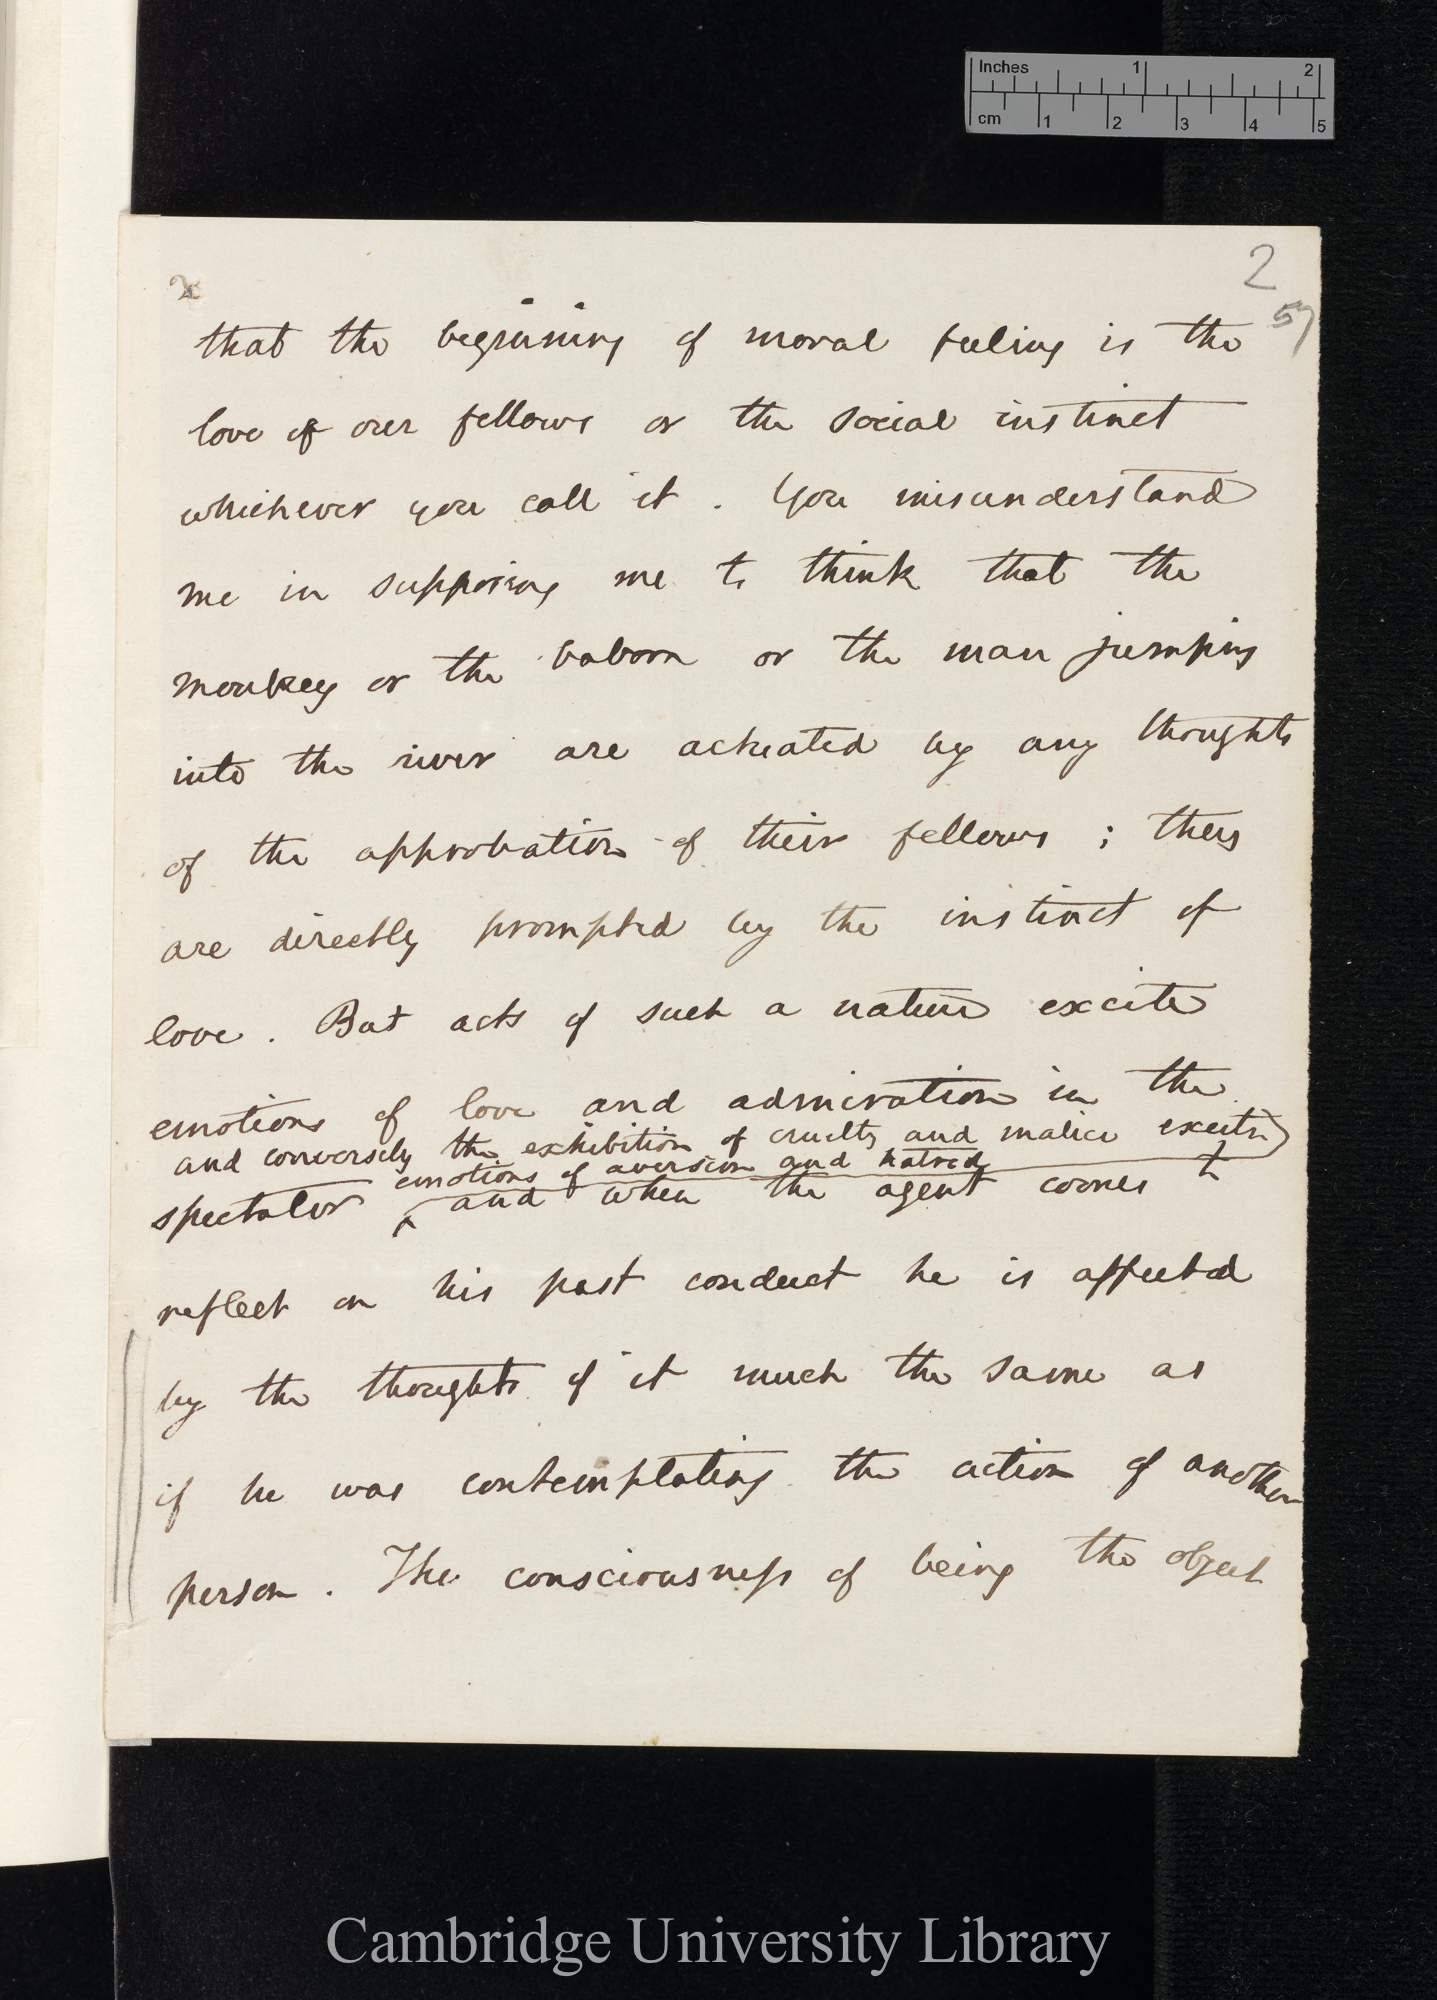 Inches 1 2
cm 1 2 3 4 5
2
57
2
that the beginning of moral feeling is the
love of our fellows or the social instinct
whichever you call it. You misunderstand
me in supposing me to think that the
monkey or the baboon or the man jumping
into the river are actuated by any thoughts
of the approbation of their fellows; they
are directly prompted by the instinct of
love. But acts of such a nature excite
emotions of love and admiration in the
and conversely the exhibition of cruelty and malice excites
emotions of aversion and hatred
spectator and when the agent comes to
reflect on his past conduct he is affected
by the thoughts of it much the same as
if he was contemplating the action of another
person. The consciousness of being the object
Cambridge University Library